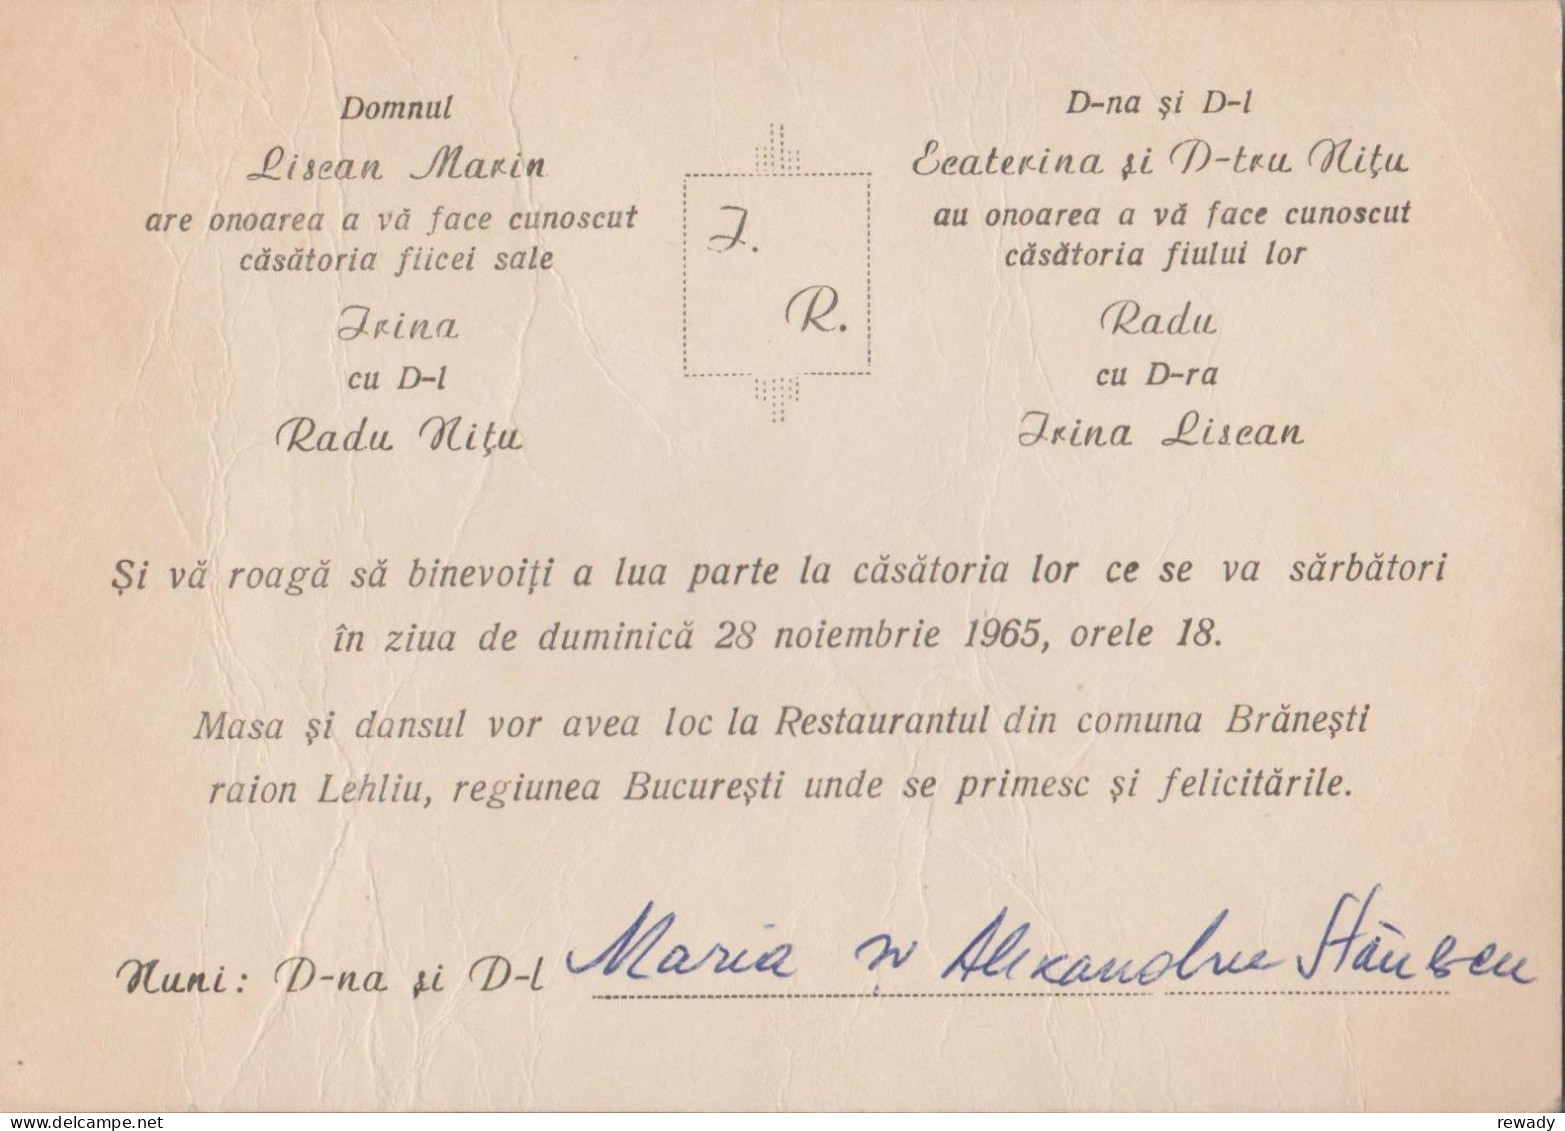 Domnul
Liscan Marin
are onoarea a vă face cunoscut
căsătoria fiicei sale
Irina
cu D-l
Radu Nițu
I.
R.
D-na și D-l
Ecaterina și D-tru Nițu
au onoarea a vă face cunoscut
căsătoria fiului lor
Radu
cu D-ra
Irina Liscan
Și vă roagă să binevoiți a lua parte la căsătoria lor ce se va sărbători
în ziua de duminică 28 noiembrie 1965, orele 18.
Masa și dansul vor avea loc la Restaurantul din comuna Brănești
raion Lehliu, regiunea București unde se primesc și felicitările.
Nuni: D-na și D-l Maria și Alexandru Stănescu
www.delcampe.net
rewady